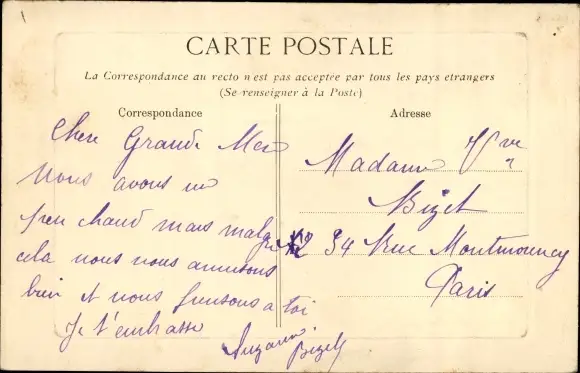 CARTE POSTALE
La Correspondance au recto n'est pas acceptée par tous les pays etrangers
(Se renseigner à la Poste)
Correspondance
Chere Grande Mere
Nous avons un
peu chaud mais malgre
cela nous nous amusons
bien et nous pensons a toi
Je t'embrasse
Suzanne
Bizet
Adresse
Madame Vve
Bizet
34 Rue Montmorency
Paris